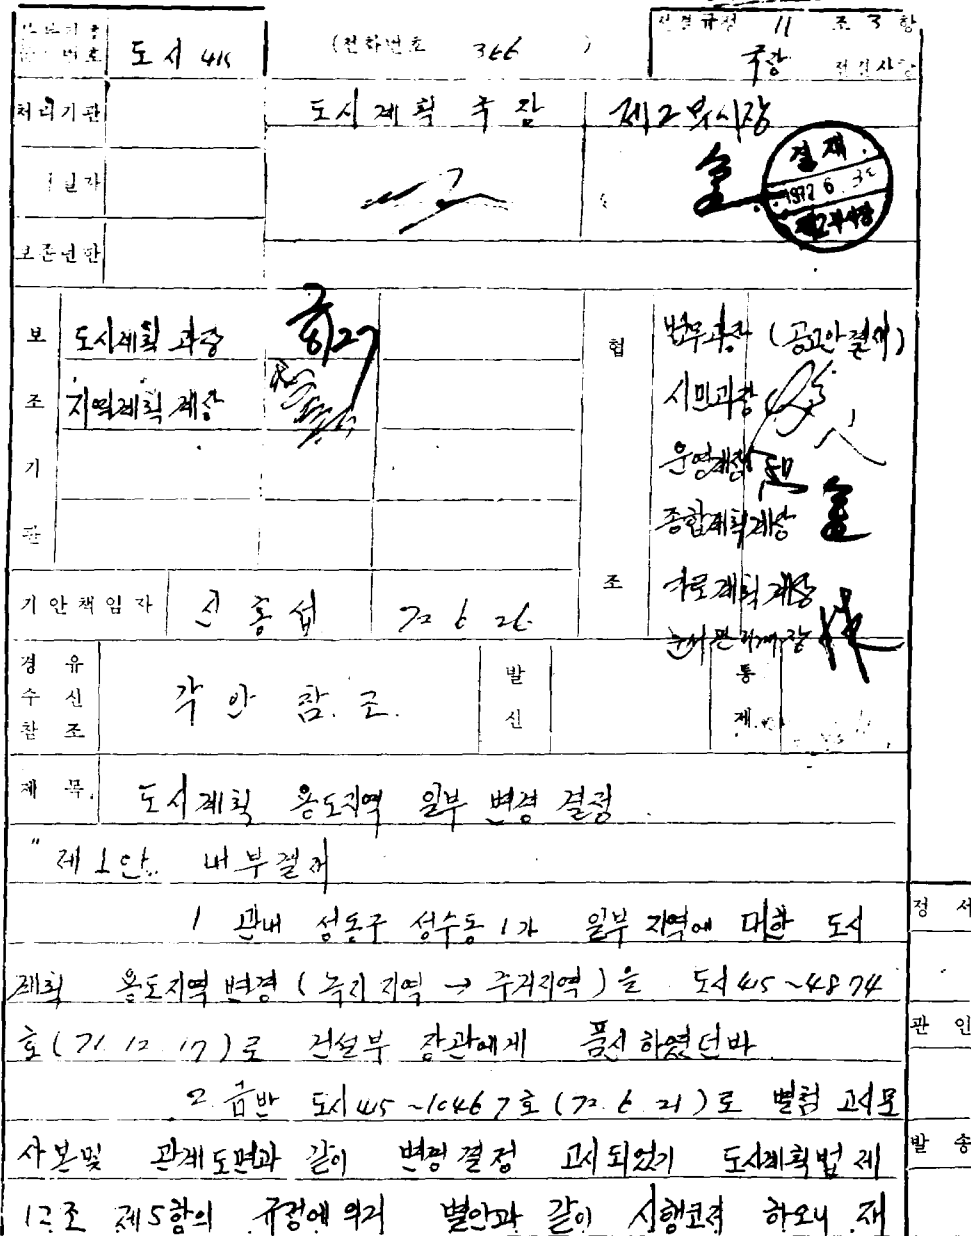 도시 415 (전화번호 366 ) 전결규정 11 조 3 항
국장 전결사항
처리기관 도시계획 국장 제2부시장
결재
1972 6. 30
제2부시장
보존년한
보 도시계획 과장 27 협 법무과장 (공고안결재)
조 지역계획 계장 시민과장
기 운영계장
관 종합계획계장
조 가로계획계장
기안책임자 신홍섭 72 6 26
경유 발 통
수신 각안 참조.
참조 신 제
제목 도시계획 용도지역 일부 변경 결정
"제1안 내부결재
1 관내 성동구 성수동 1가 일부 지역에 대한 도시
계획 용도지역 변경 (녹지 지역 → 주거지역) 을 도시 415~4874
호 (71 12 17) 로 건설부 장관에게 품신 하였던바
2 금반 도시 415~10467호 (72. 6 21) 로 별첨 고시문
사본및 관계도면과 같이 변경결정 고시 되었기 도시계획법 제
12조 제5항의 규정에 의거 별안과 같이 시행코져 하오니 재
정서
관인
발송